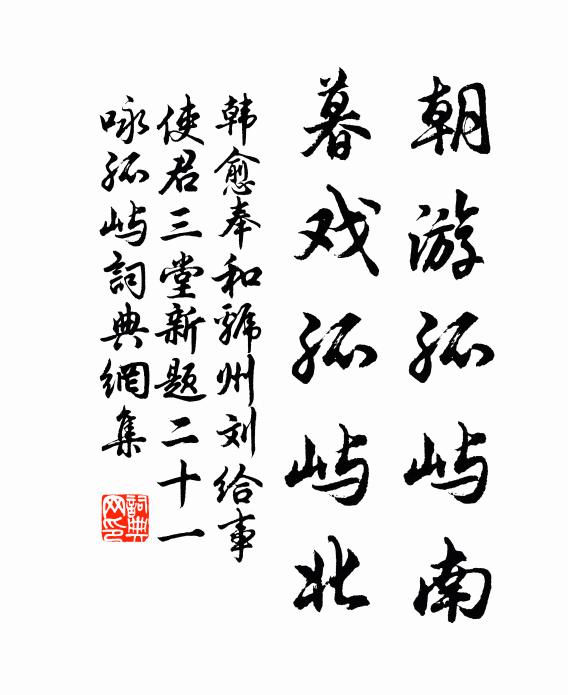 朝游孤屿南
暮戏孤屿北
韩愈奉和虢州刘给事
使君三堂新题二十一
咏孤屿詞典網集
詞典网印